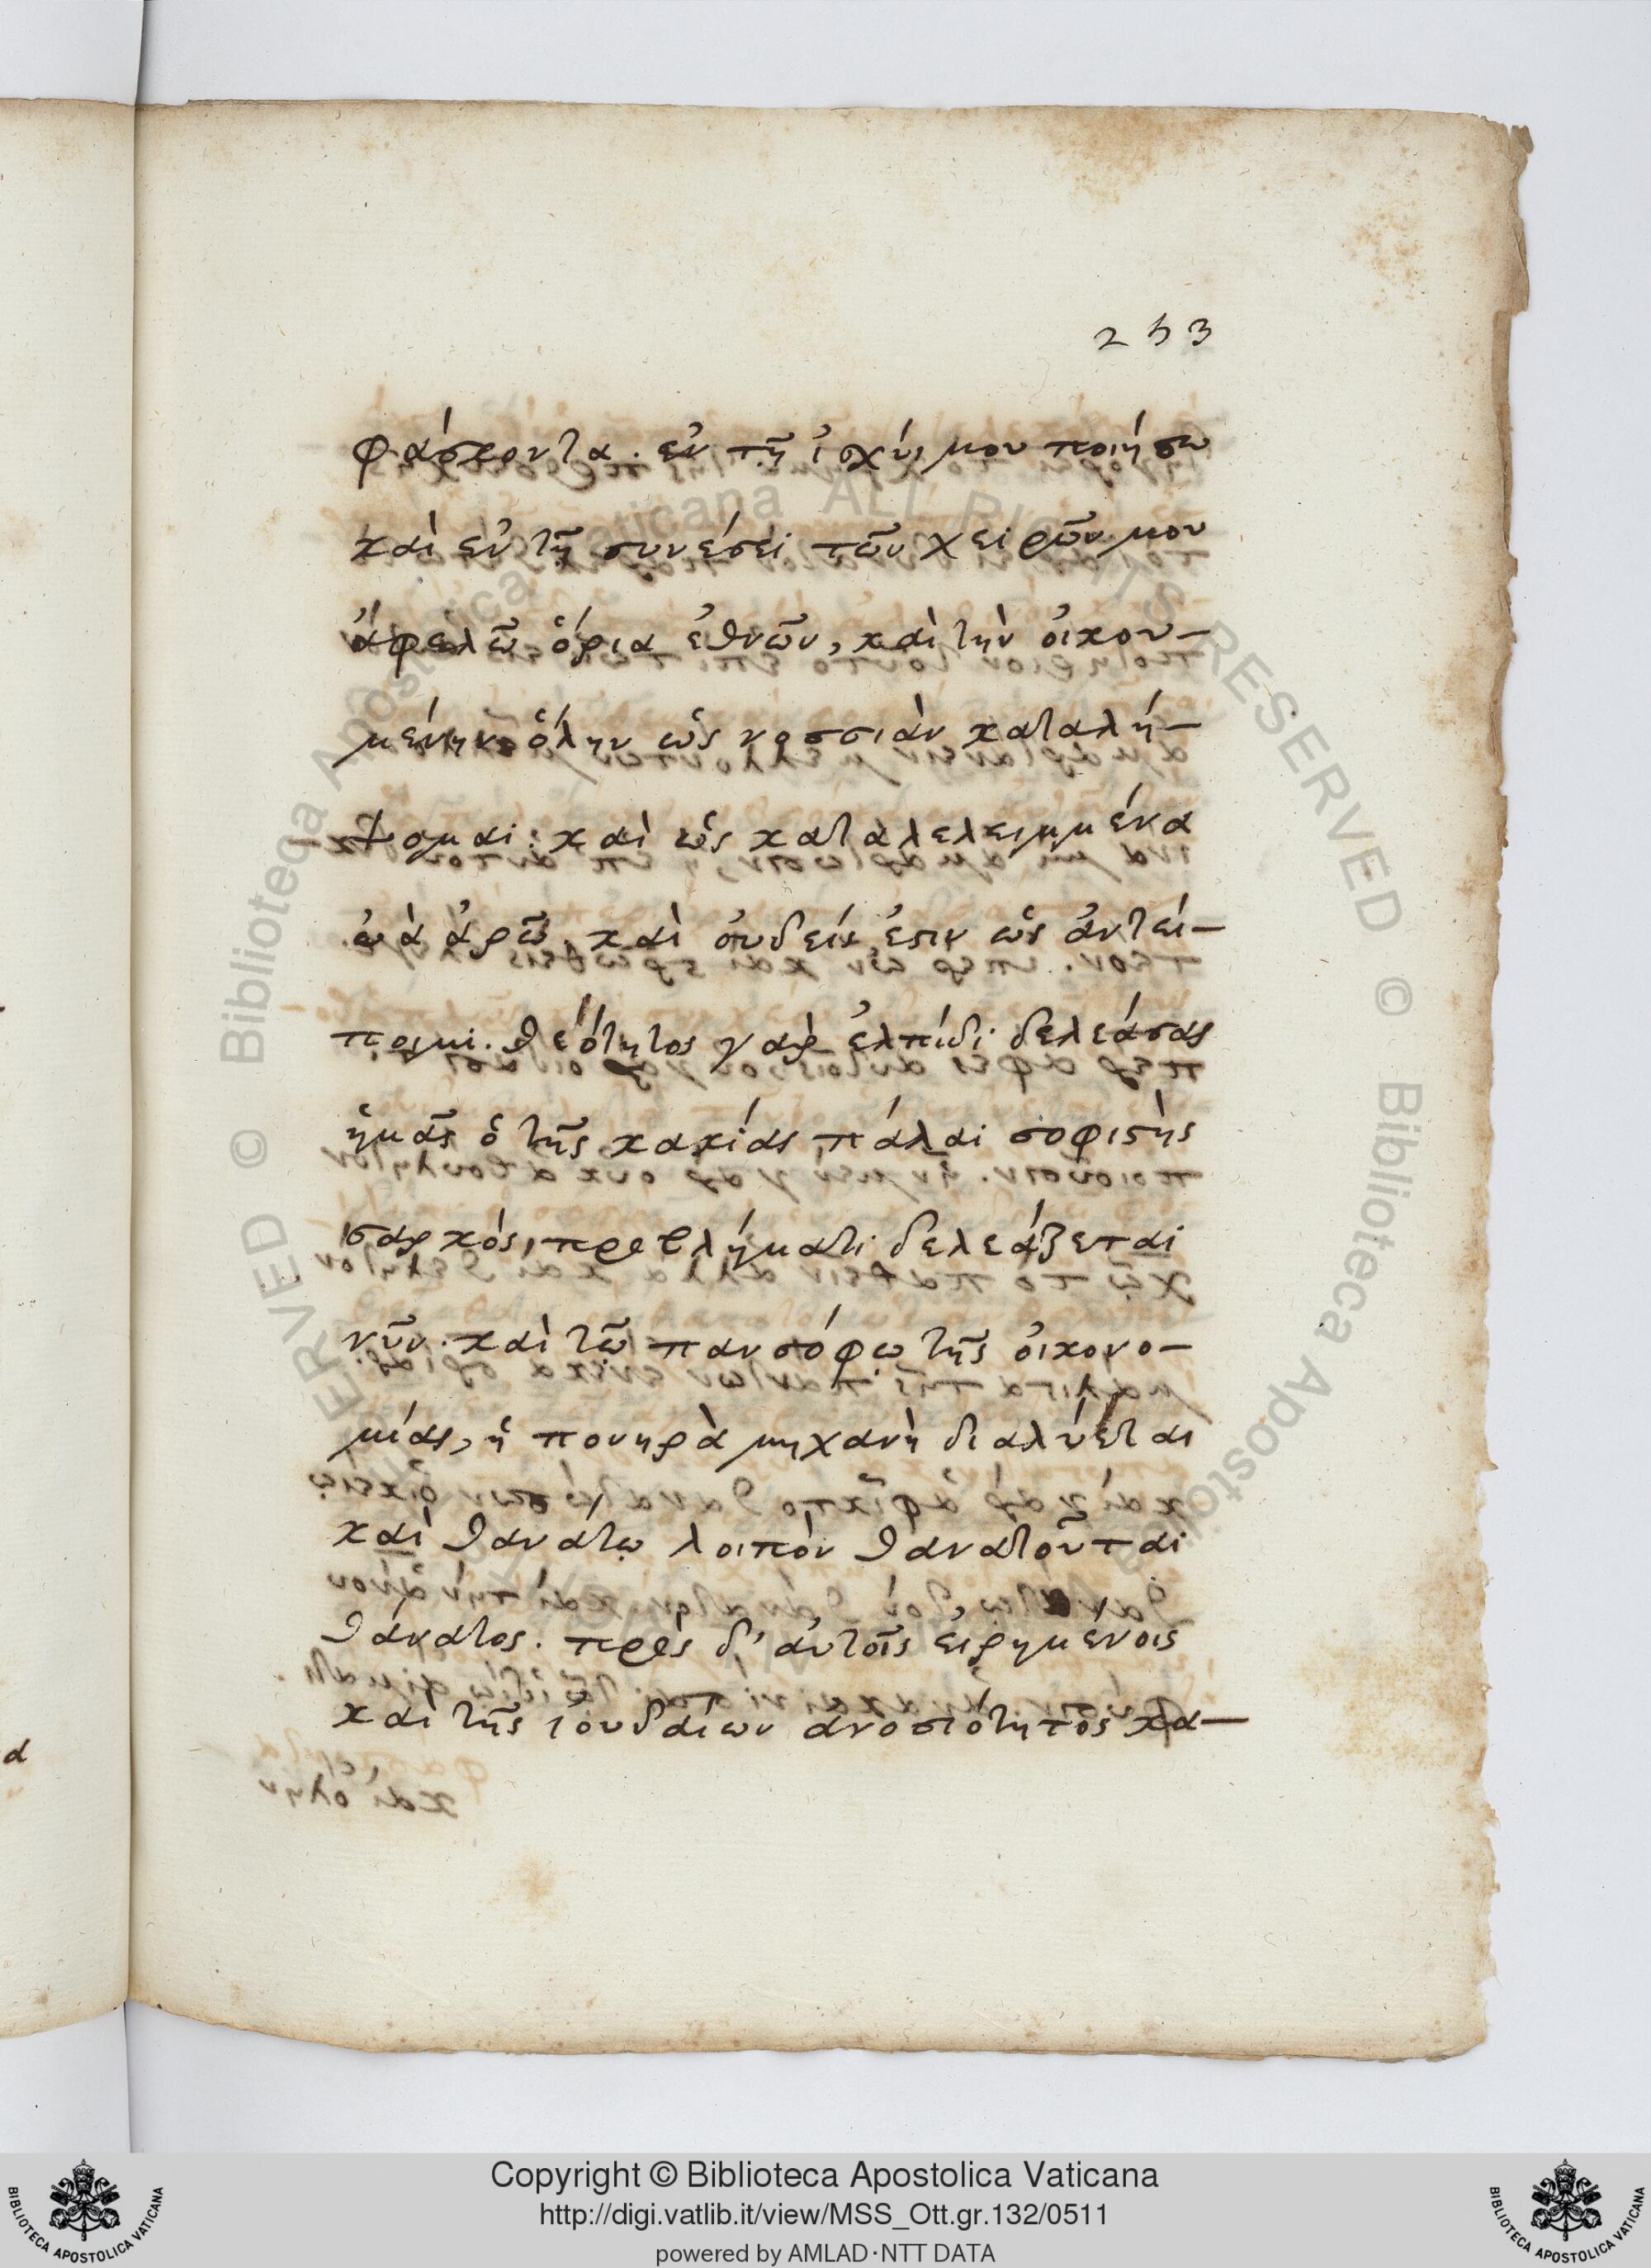 253
φάσκοντα. ἐν τῇ ἰσχύι μου ποιήσω
καὶ ἐν τῇ συνέσει τῶν χειρῶν μου
ἀφελῶ ὅρια ἐθνῶν, καὶ τὴν οἰκου-
μένην ὅλην ὡς νοσσιὰν καταλή-
ψομαι: καὶ ὡς καταλελειμμένα
ὠὰ ἀρῶ, καὶ οὐδείς ἐστιν ὡς ἀντεί-
ποιμι. θεότητος γὰρ ἐλπίδι δελεάσας
ἡμᾶς ὁ τῆς κακίας πάλαι σοφιστὴς
σαρκός, προβλήματι δελεάζεται
νῦν. καὶ τῷ πανσόφῳ τῆς οἰκονο-
μίας, ἡ πονηρὰ μηχανὴ διαλύεται
καὶ θανάτῳ λοιπὸν θανατοῦται
θάνατος. πρὸς δ' αὐτοῖς εἰρημένοις
καὶ τῆς ἰουδαίων ἀνοσιότητος κα-
Copyright © Biblioteca Apostolica Vaticana
http://digi.vatlib.it/view/MSS_Ott.gr.132/0511
powered by AMLAD·NTT DATA
BIBLIOTECA APOSTOLICA VATICANA
BIBLIOTECA APOSTOLICA VATICANA